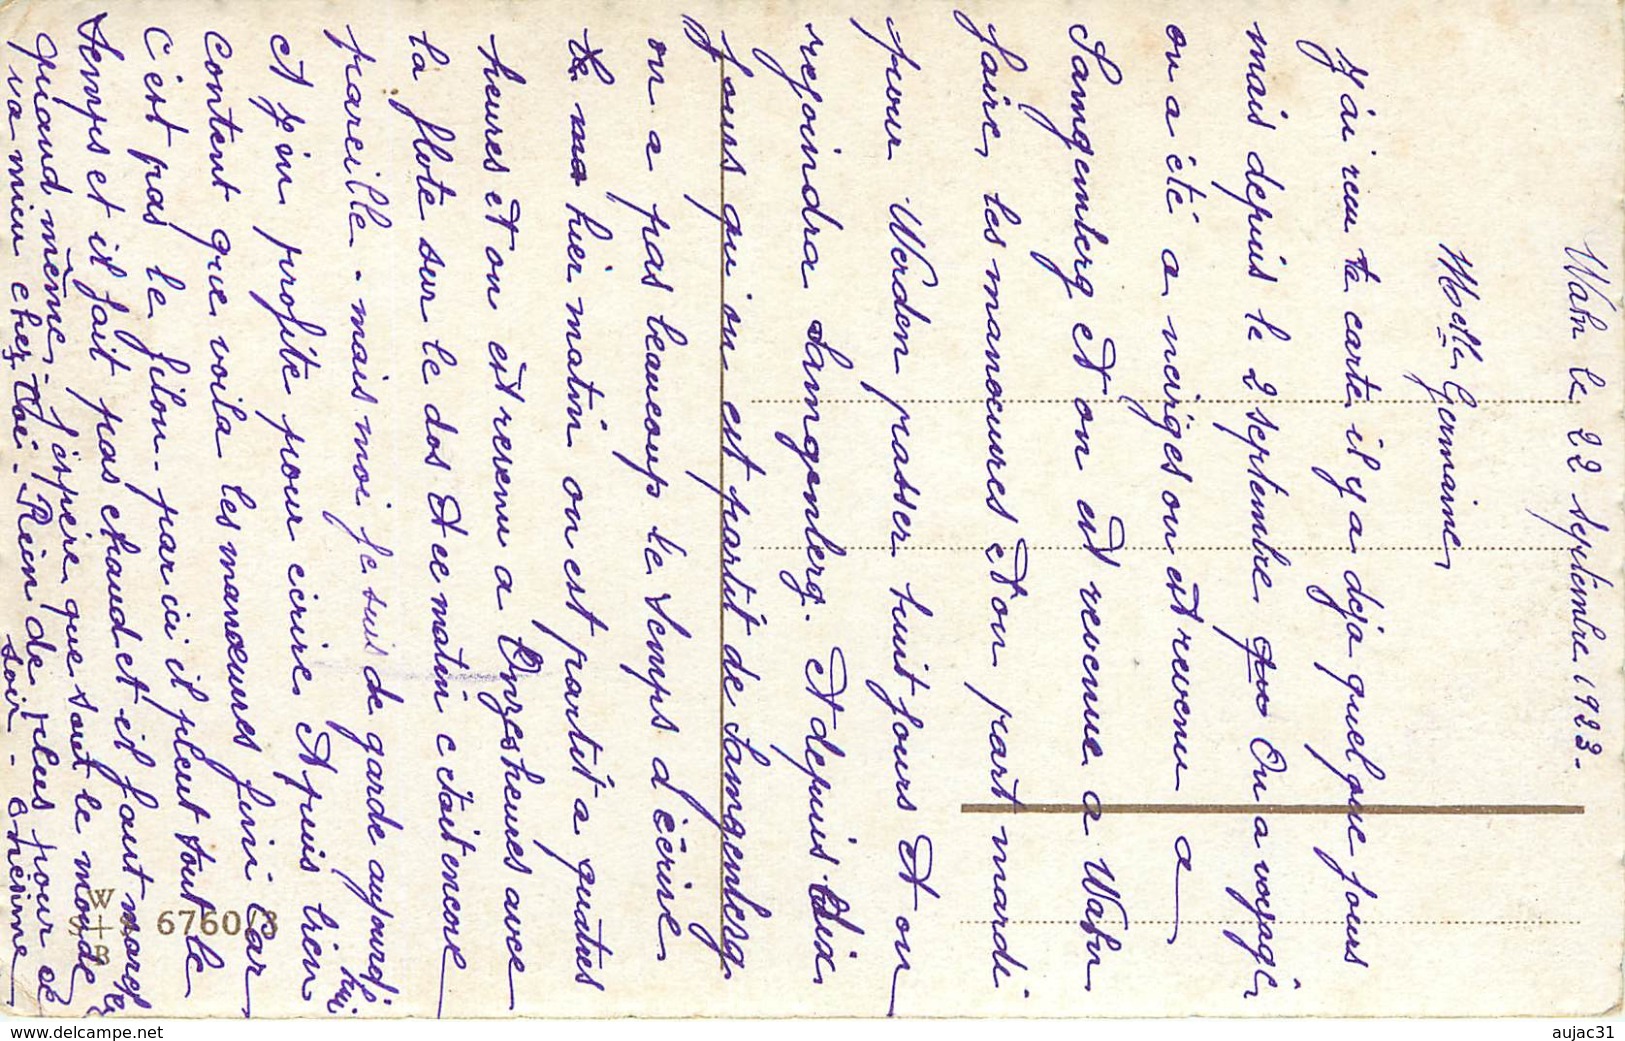 Wahn le 22 septembre 1923-
Mselle Germaine
J'ai reçu ta carte il y a deja quelque jours
mais depuis le 2 septembre On a voyagé,
on a été a on est revenu a
Lamgemberg et on est revenue a Wahn
faire les manoeuvres et on part mardi
pour Werden passer huit jours et on
rejoindra Lamgenberg. Et depuis dix
jours qu'on est partit de Lamgenberg
on a pas beaucoup le temps d'écrire
hier matin on est partit a quatres
heures et on est revenu a Onzes heures avec
la flote sur le dos et ce matin c'était encore
pareille - mais moi je suis de garde aujourd'hui
et j'en profite pour ecrire. Et puis bien
Content que voila les manœuvres fini Car
C'est pas le filon - par ici il pleut tout le
temps et il fait pas chaud et il faut marcher
quand même - J'éspère que tout le monde
va mieu chez toi - Rien de plus pour ce
soir -
W
S+
B
6760/3
www.delcampe.net
aujac31